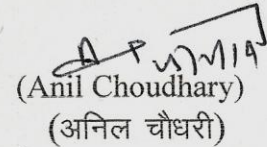 (Anil Choudhary)
(अनिल चौधरी)